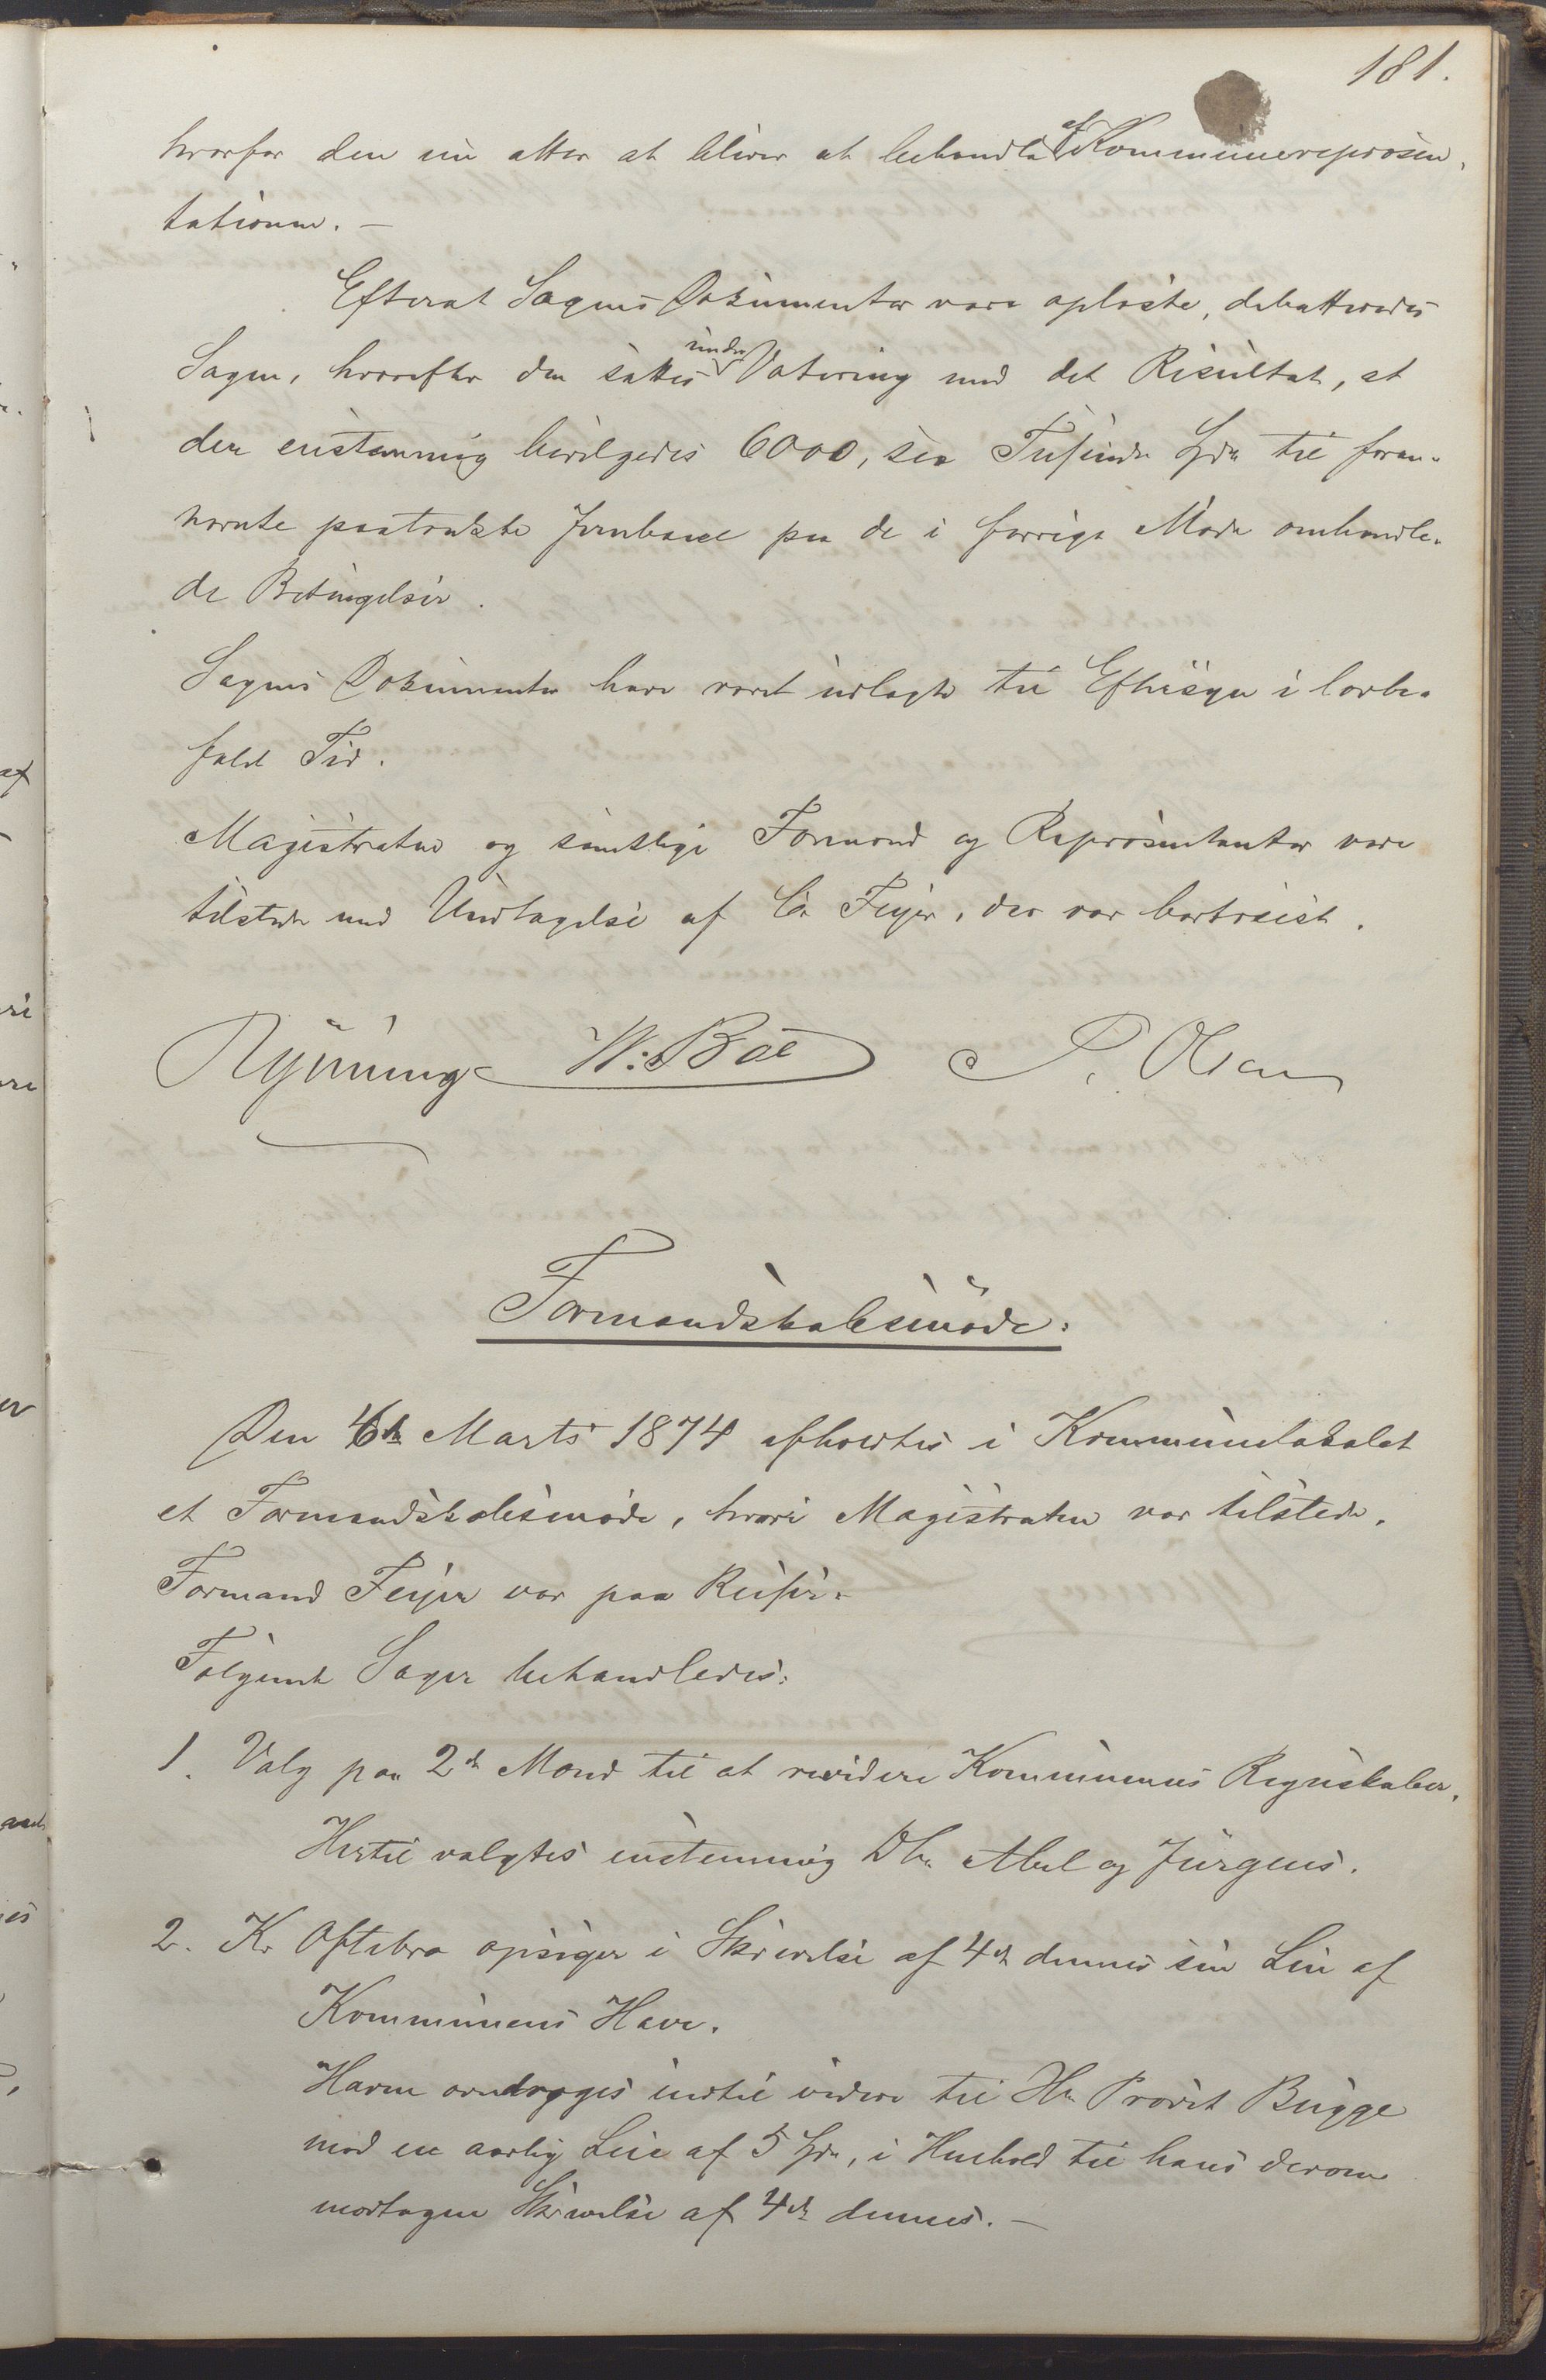 181.
hvorfor den nu atter at bliver at behandle af Kommunerepræsen-
tationen. -
Efterat Sagens Dokumenter vare oplæste, debatteredes
Sagen, hvorefter den sattes under Votering med det Resultat, at
der enstemmig bevilgedes 6000, sex Tusinde Spd. til foran-
nævnte paatænkte Jernbane paa de i forrige Møde omhandle-
de Betingelser.
Sagens Dokumenter have været udlagte til Eftersyn i lovbe-
falet Tid.
Magistraten og samtlige Formænd og Repræsentanter vare
tilstede med Undtagelse af Feyer, der var bortreist.
Rynning W: Böe P. Olsen
Formandskabsmøde:
Den 6te Marts 1874 afholdtes i Kommunelokalet
et Formandskabsmøde, hvori Magistraten var tilstede.
Formand Feyer var paa Reiser.
Følgende Sager behandledes:
1. Valg paa 2de Mænd til at revidere Kommunens Regnskaber.
Hertil valgtes enstemmig DHr. Abel og Jürgens.
2. K. Oftebro opsiger i Skrivelse af 4de dennes sin Leie af
Kommunens Have.
Haven overdrages indtil videre til Hr. Provst Bugge
mod en aarlig Leie af 5 Spd., i Henhold til hans derom
modtagne Skrivelse af 4de dennes. -